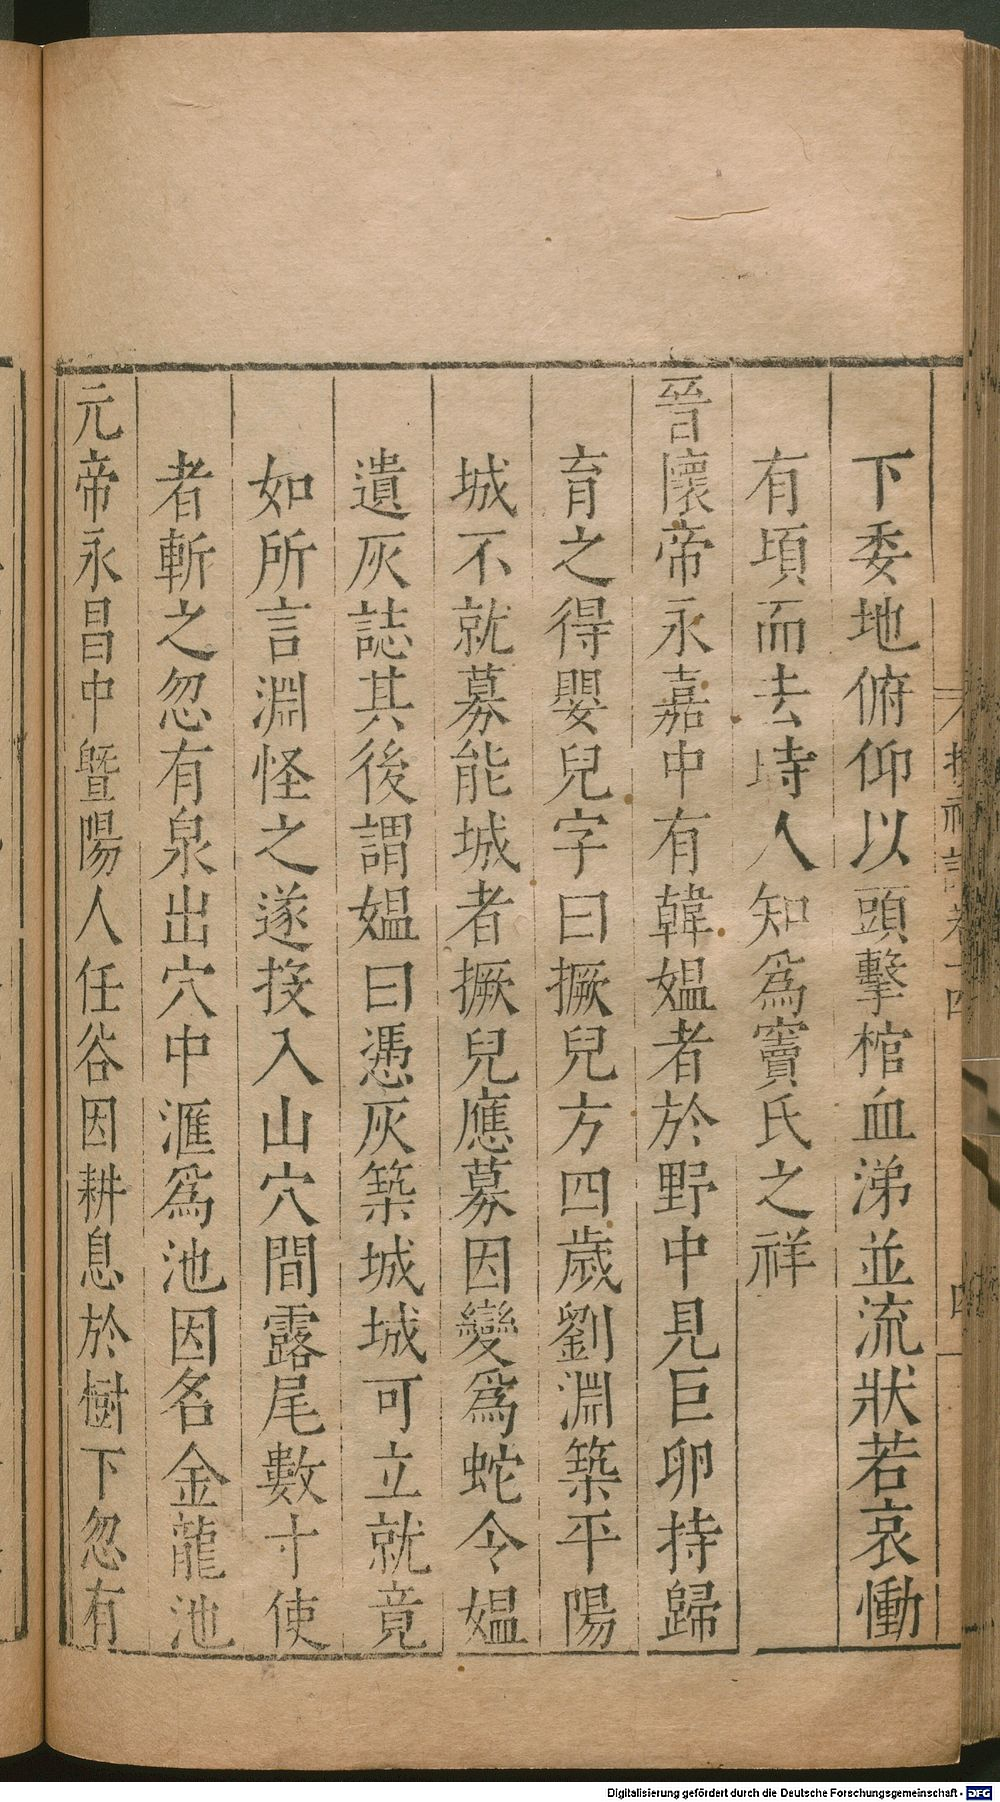 下委地俯仰以頭擊棺血涕並流狀若哀慟
有頃而去時人知爲竇氏之祥
晉懷帝永嘉中有韓媼者於野中見巨卵持歸
育之得嬰兒字曰撅兒方四歲劉淵築平陽
城不就募能城者撅兒應募因變爲蛇令媼
遺灰誌其後謂媼曰憑灰築城城可立就竟
如所言淵怪之遂投入山穴間露尾數寸使
者斬之忽有泉出穴中滙爲池因名金龍池
元帝永昌中暨陽人任谷因耕息於樹下忽有
Digitalisierung gefördert durch die Deutsche Forschungsgemeinschaft - DFG